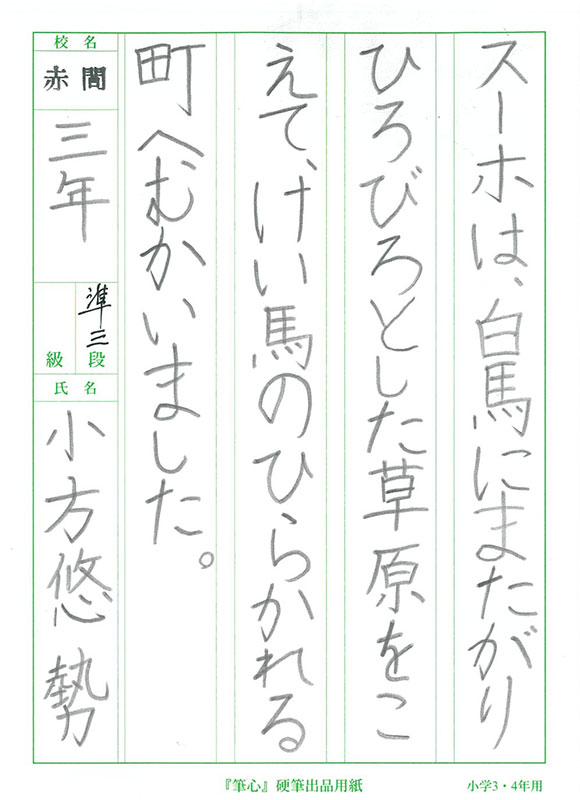 スーホは、白馬にまたがり
ひろびろとした草原をこ
えて、けい馬のひらかれる
町へむかいました。
校名
赤間
三年
準三
段
級
氏名
小方悠勢
『筆心』硬筆出品用紙
小学3・4年用